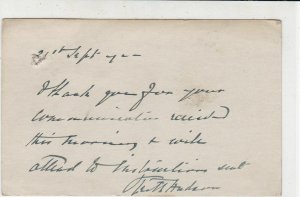 21st Sept
I thank you for your
communication received
this morning & will
attend to instructions sent